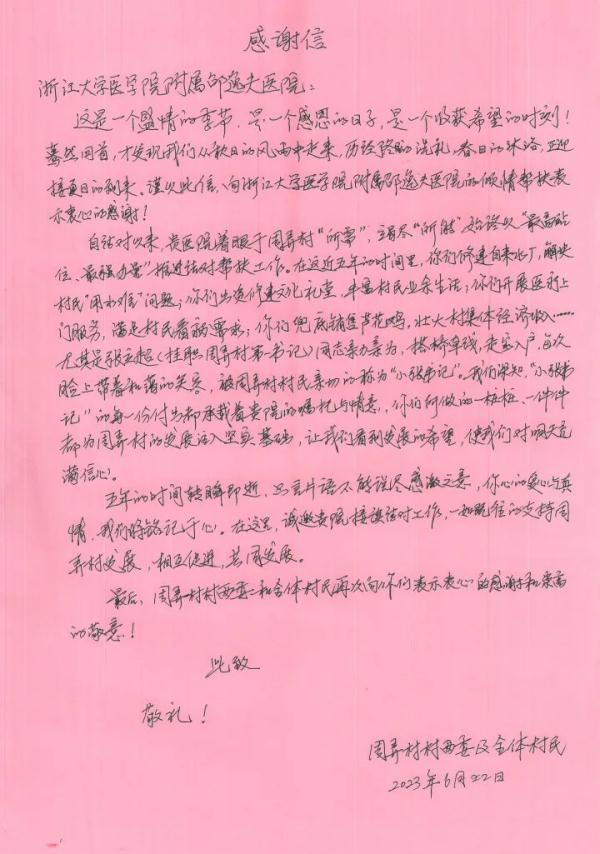 感谢信
浙江大学医学院附属邵逸夫医院：
这是一个盛情的季节，是一个感恩的日子，是一个收获希望的时刻！
蓦然回首，才发现我们从秋日的风雨中走来，历经冬的洗礼，春日的沐浴，正迎
接夏日的到来。谨以此信，向浙江大学医学院附属邵逸夫医院的倾情帮扶表
示衷心的感谢！
自结对以来，贵医院着眼于周弄村“所需”，竭尽“所能”始终以“最高站
位、最强力量”推进结对帮扶工作。在这近五年的时间里，你们修建自来水厂，解决
村民“用水难”问题；你们出资修建文化礼堂，丰富村民业余生活；你们开展医疗上
门服务，满足村民看病需求；你们兜底销售芦花鸡，壮大村集体经济收入……
尤其是张立超（挂职周弄村第一书记）同志亲力亲为，搭桥牵线，走家入户每次
脸上带着和蔼的笑容，被周弄村村民亲切的称为“小张书记”。我们深知，“小张书
记”的每一份付出都承载着贵院的嘱托与情意，你们所做的一桩桩、一件件
都为周弄村的发展注入坚实基础，让我们看到发展的希望，使我们对明天充
满信心。
五年的时间转瞬即逝，只言片语不能说尽感激之意，你们的爱心与真
情，我们将铭记于心。在这里，诚邀贵院接续结对工作，一如既往的支持周
弄村发展，相互促进，共同发展。
最后，周弄村村两委和全体村民再次向你们表示衷心的感谢和崇高
的敬意！
此致
敬礼！
周弄村村两委及全体村民
2023年6月22日